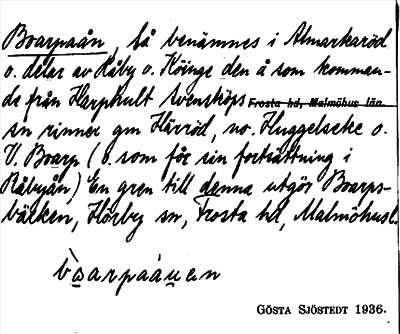 Boarpaån, så benämnes i Almarkaröd
o. delar av Råby o. Köinge den å som komman-
de från Harphult Svensköps Frosta hd, Malmöhus län.
sn rinner gm Härröd, no. Huggelseke o.
V. Boarp (o. som får sin fortsättning i
Råbyån) En gren till denna utgör Boarps-
bäcken, Hörby sn, Frosta hd, Malmöhusl.
GÖSTA SJÖSTEDT 1936.